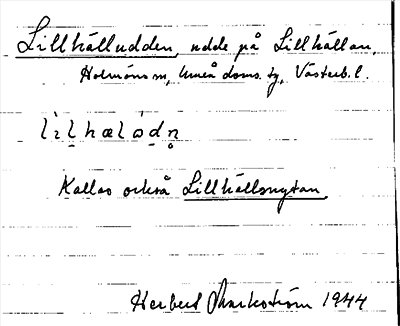 Lillhälludden, udde på Lillhällan,
Holmöns sn, Umeå doms. tg, Västerb. l.
lìlhælòdn̥
Kallas också Lillhällsnytan
Herbert Markström 1944